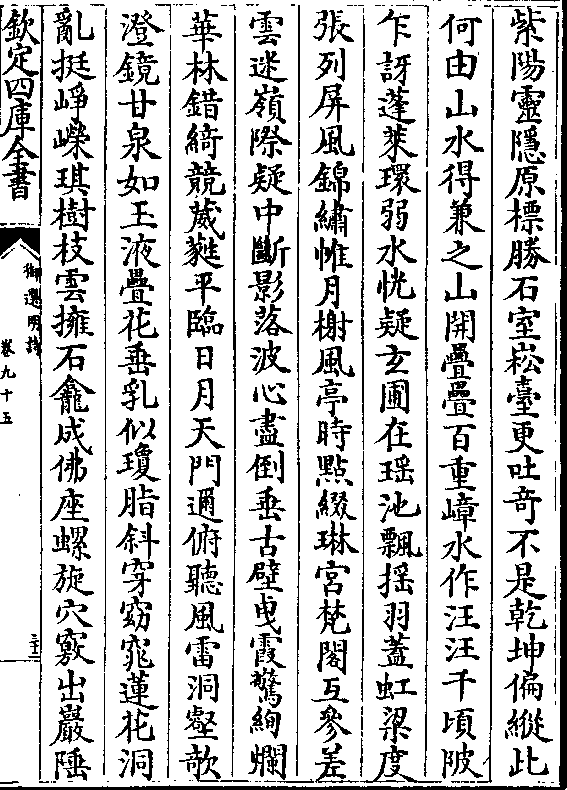 紫陽靈隠原標勝石室崧臺更吐竒不是乾坤偏縱此
何由山水得兼之山開疊疊百重嶂水作汪汪千頃陂
乍訝蓬萊環弱水恍疑玄圃在瑶池飄揺羽葢虹梁度
張列屏風錦繡惟月榭風亭時㸃綴琳宮梵閣互參差
雲迷嶺際疑中斷影落波心盡倒垂古壁曵霞驚絢爛
華林錯綺競葳蕤平臨日月天門邇俯聽風雷洞壑欹
澄鏡甘泉如玉液疊花垂乳似瓊脂斜穿窈窕蓮花洞
亂挺崢嶸琪樹枝雲擁石龕成佛座螺旋穴竅出巖陲
欽定四庫全書
御選明詩
卷九十五